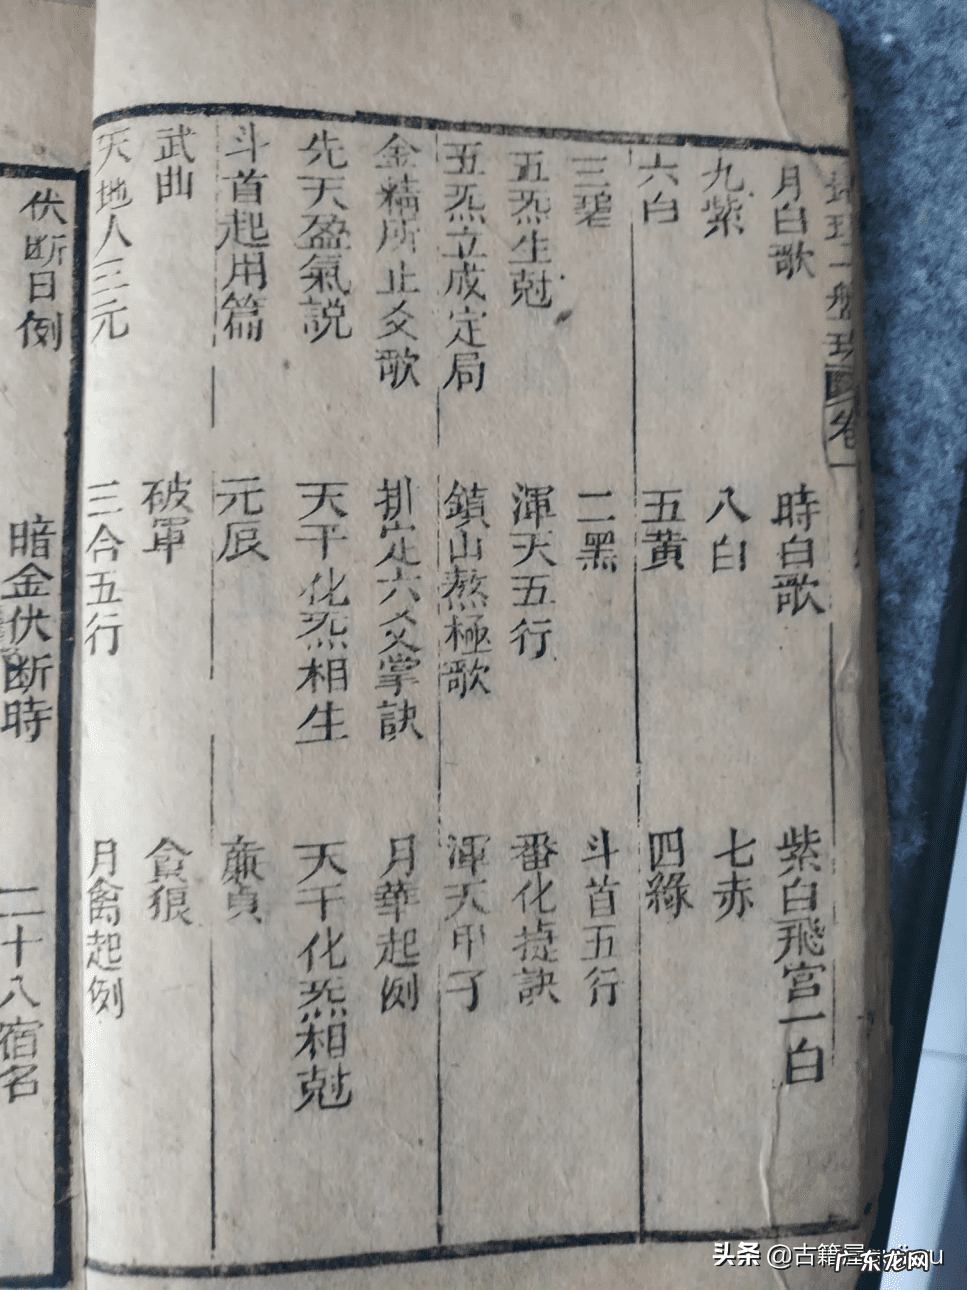 地理一盤珠 卷一
月白歌 時白歌 紫白飛宫一白
九紫 八白 七赤
六白 五黄 四綠
三碧 二黑 斗首五行
五炁生尅 渾天五行 番化捷訣
五炁立成定局 鎮山熬極歌 渾天甲子
金精所止爻歌 排定六爻掌訣 月華起例
先天盈氣説 天干化炁相生 天干化炁相尅
斗首起用篇 元辰 亷貞
武曲 破軍 貪狼
天地人三元 三合五行 月禽起例
伏断日例 暗金伏断時 二十八宿名
头条 @古籍屋
广东龙网